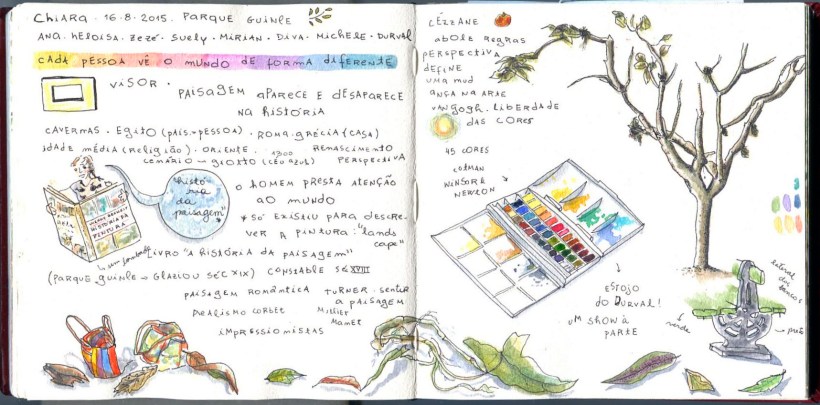 CHIARA. 16.8.2015. PARQUE GUINLE
ANA. HELOISA. ZEZÉ. SUELY. MIRIAN. DIVA. MICHELE. DURVAL
CADA PESSOA VÊ O MUNDO DE FORMA DIFERENTE
VISOR.
PAISAGEM APARECE E DESAPARECE
NA HISTÓRIA
CAVERMAS. EGITO (PAIS.+PESSOA). ROMA.GRÉCIA (CASA)
IDADE MÉDIA (RELIGIÃO). ORIENTE. 1300 RENASCIMENTO
CENÁRIO - GIOTTO (CÉU AZUL) PERSPECTIVA
HISTÓ
RIA DA
PAISAGEM"
HISTÓRIA DA
PINTURA
O HOMEM PRESTA ATENÇÃO
AO MUNDO
* SÓ EXISTIU PARA DESCRE-
VER A PINTURA: "LANDS
CAPE"
LIVRO "A HISTÓRIA DA PAISAGEM"
(PARQUE GUINLE - GLAZIOU SÉC XIX) CONSTABLE SÉC XVIII
PAISAGEM ROMÂNTICA TURNER. SENTIR
A PAISAGEM
REALISMO CORBET MILLIET
MANET
IMPRESSIONISTAS
CÉZEANE
ABOLE REGRAS
PERSPECTIVA
DEFINE
UMA MUD
ANÇA NA ARTE
VAN GOGH. LIBERDADE
DAS CORES
45 CORES
COTMAN
WINSOR &
NEWTON
ESTOJO
DO DURVAL!
UM SHOW À
PARTE
LATERAL
DOS
BANCOS
VERDE